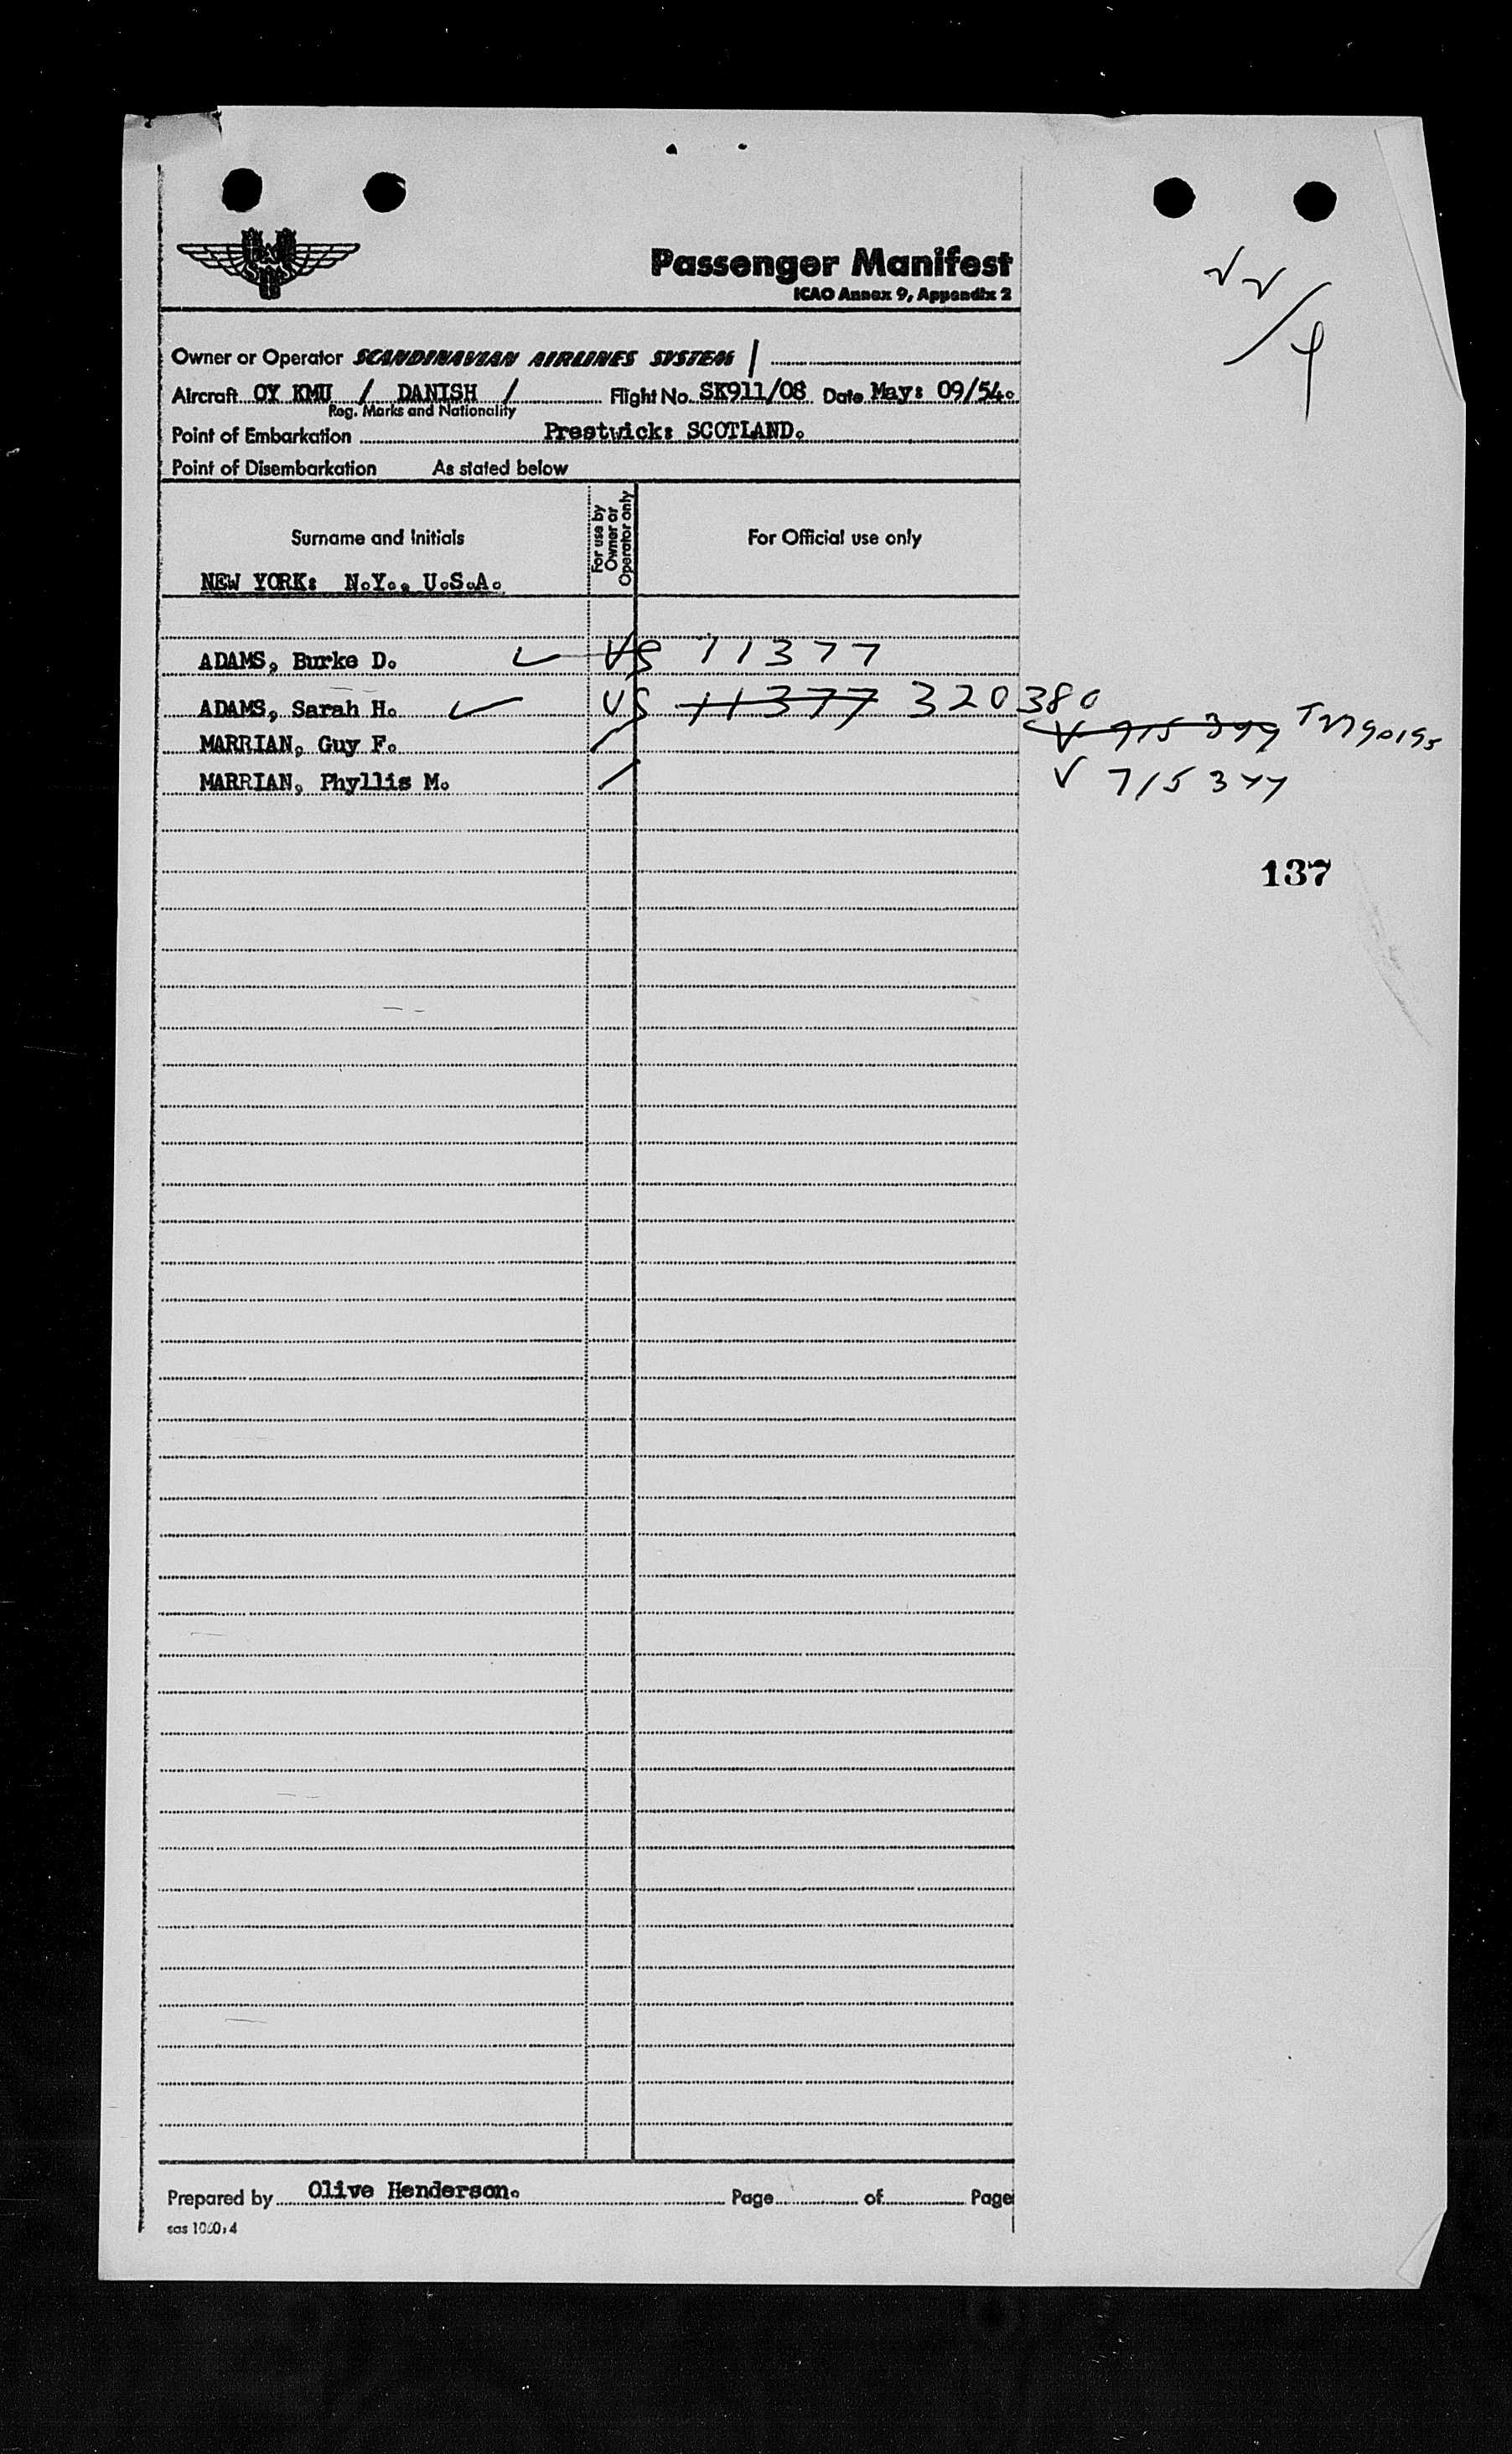 Passenger Manifest
ICAO Annex 9, Appendix 2
Owner or Operator SCANDINAVIAN AIRLINES SYSTEM /
Aircraft OY KMU / DANISH / Flight No. SK911/08 Date May: 09/54.
Reg. Marks and Nationality
Point of Embarkation Prestwick: SCOTLAND.
Point of Disembarkation As stated below
Surname and Initials
For use by Owner or Operator only
For Official use only
NEW YORK: N.Y., U.S.A.
ADAMS, Burke D. US 11377
ADAMS, Sarah H. US 11377 320380
MARRIAN, Guy F.
MARRIAN, Phyllis M. V 715377
137
Prepared by Olive Henderson. Page of Page